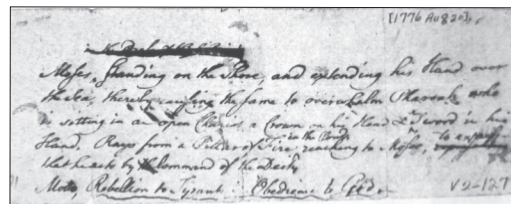 [1776 Au 820]
Moses standing on the Shore, and extending his Hand over
the Sea, thereby causing the same to overwhelm Pharaoh who
is sitting in an open Chariot, a Crown on his Head & a Sword in his
Hand. Rays from a Pillar of Fire in the Clouds reaching to Moses, to express
that he acts by Command of the Deity
Motto, Rebellion to Tyrants is Obedience to God.
V 2-127